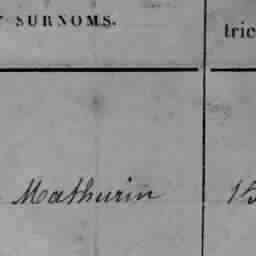 SURNOMS.
tric
Mathurin
15